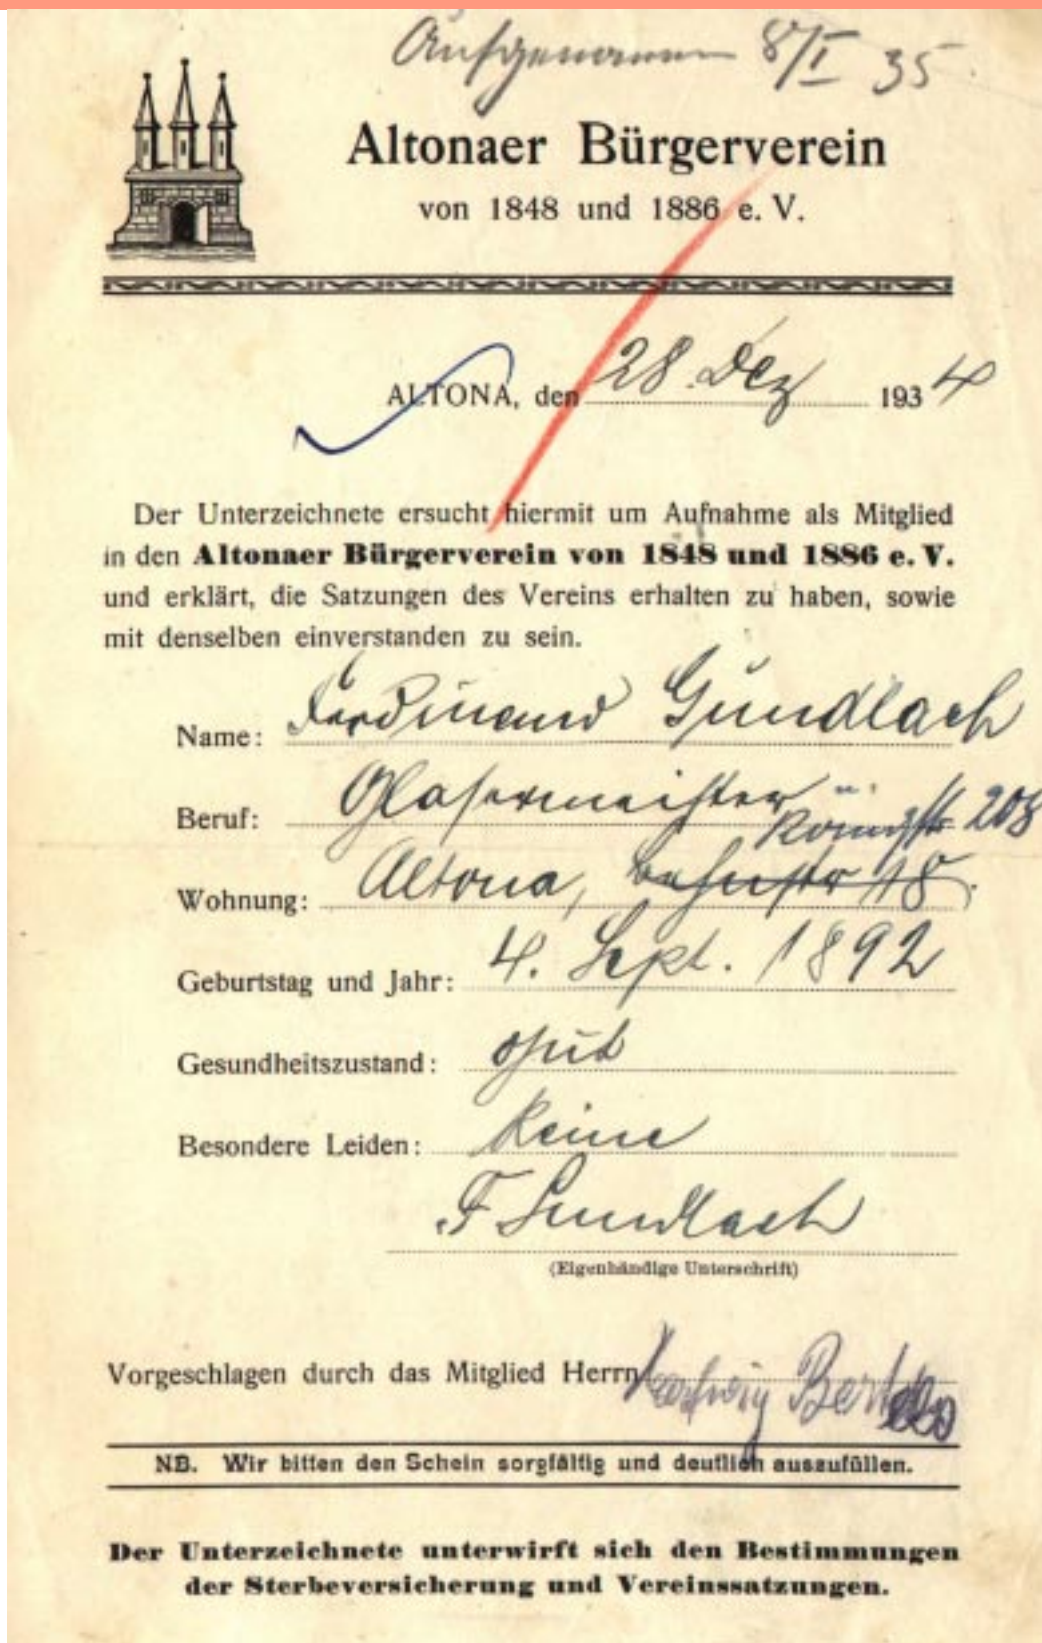 Aufgenommen 8/I 35
Altonaer Bürgerverein
von 1848 und 1886 e. V.
ALTONA, den 28. Dez 1934
Der Unterzeichnete ersucht hiermit um Aufnahme als Mitglied
in den Altonaer Bürgerverein von 1848 und 1886 e. V.
und erklärt, die Satzungen des Vereins erhalten zu haben, sowie
mit denselben einverstanden zu sein.
Name: Ferdinand Gundlach
Beruf: Glasermeister
Königstr 208
Wohnung: Altona, Bahnstr 18.
Geburtstag und Jahr: 4. Sept. 1892
Gesundheitszustand: gut
Besondere Leiden: Keine
F Gundlach
(Eigenhändige Unterschrift)
Vorgeschlagen durch das Mitglied Herrn Bertels
NB. Wir bitten den Schein sorgfältig und deutlich auszufüllen.
Der Unterzeichnete unterwirft sich den Bestimmungen
der Sterbeversicherung und Vereinssatzungen.